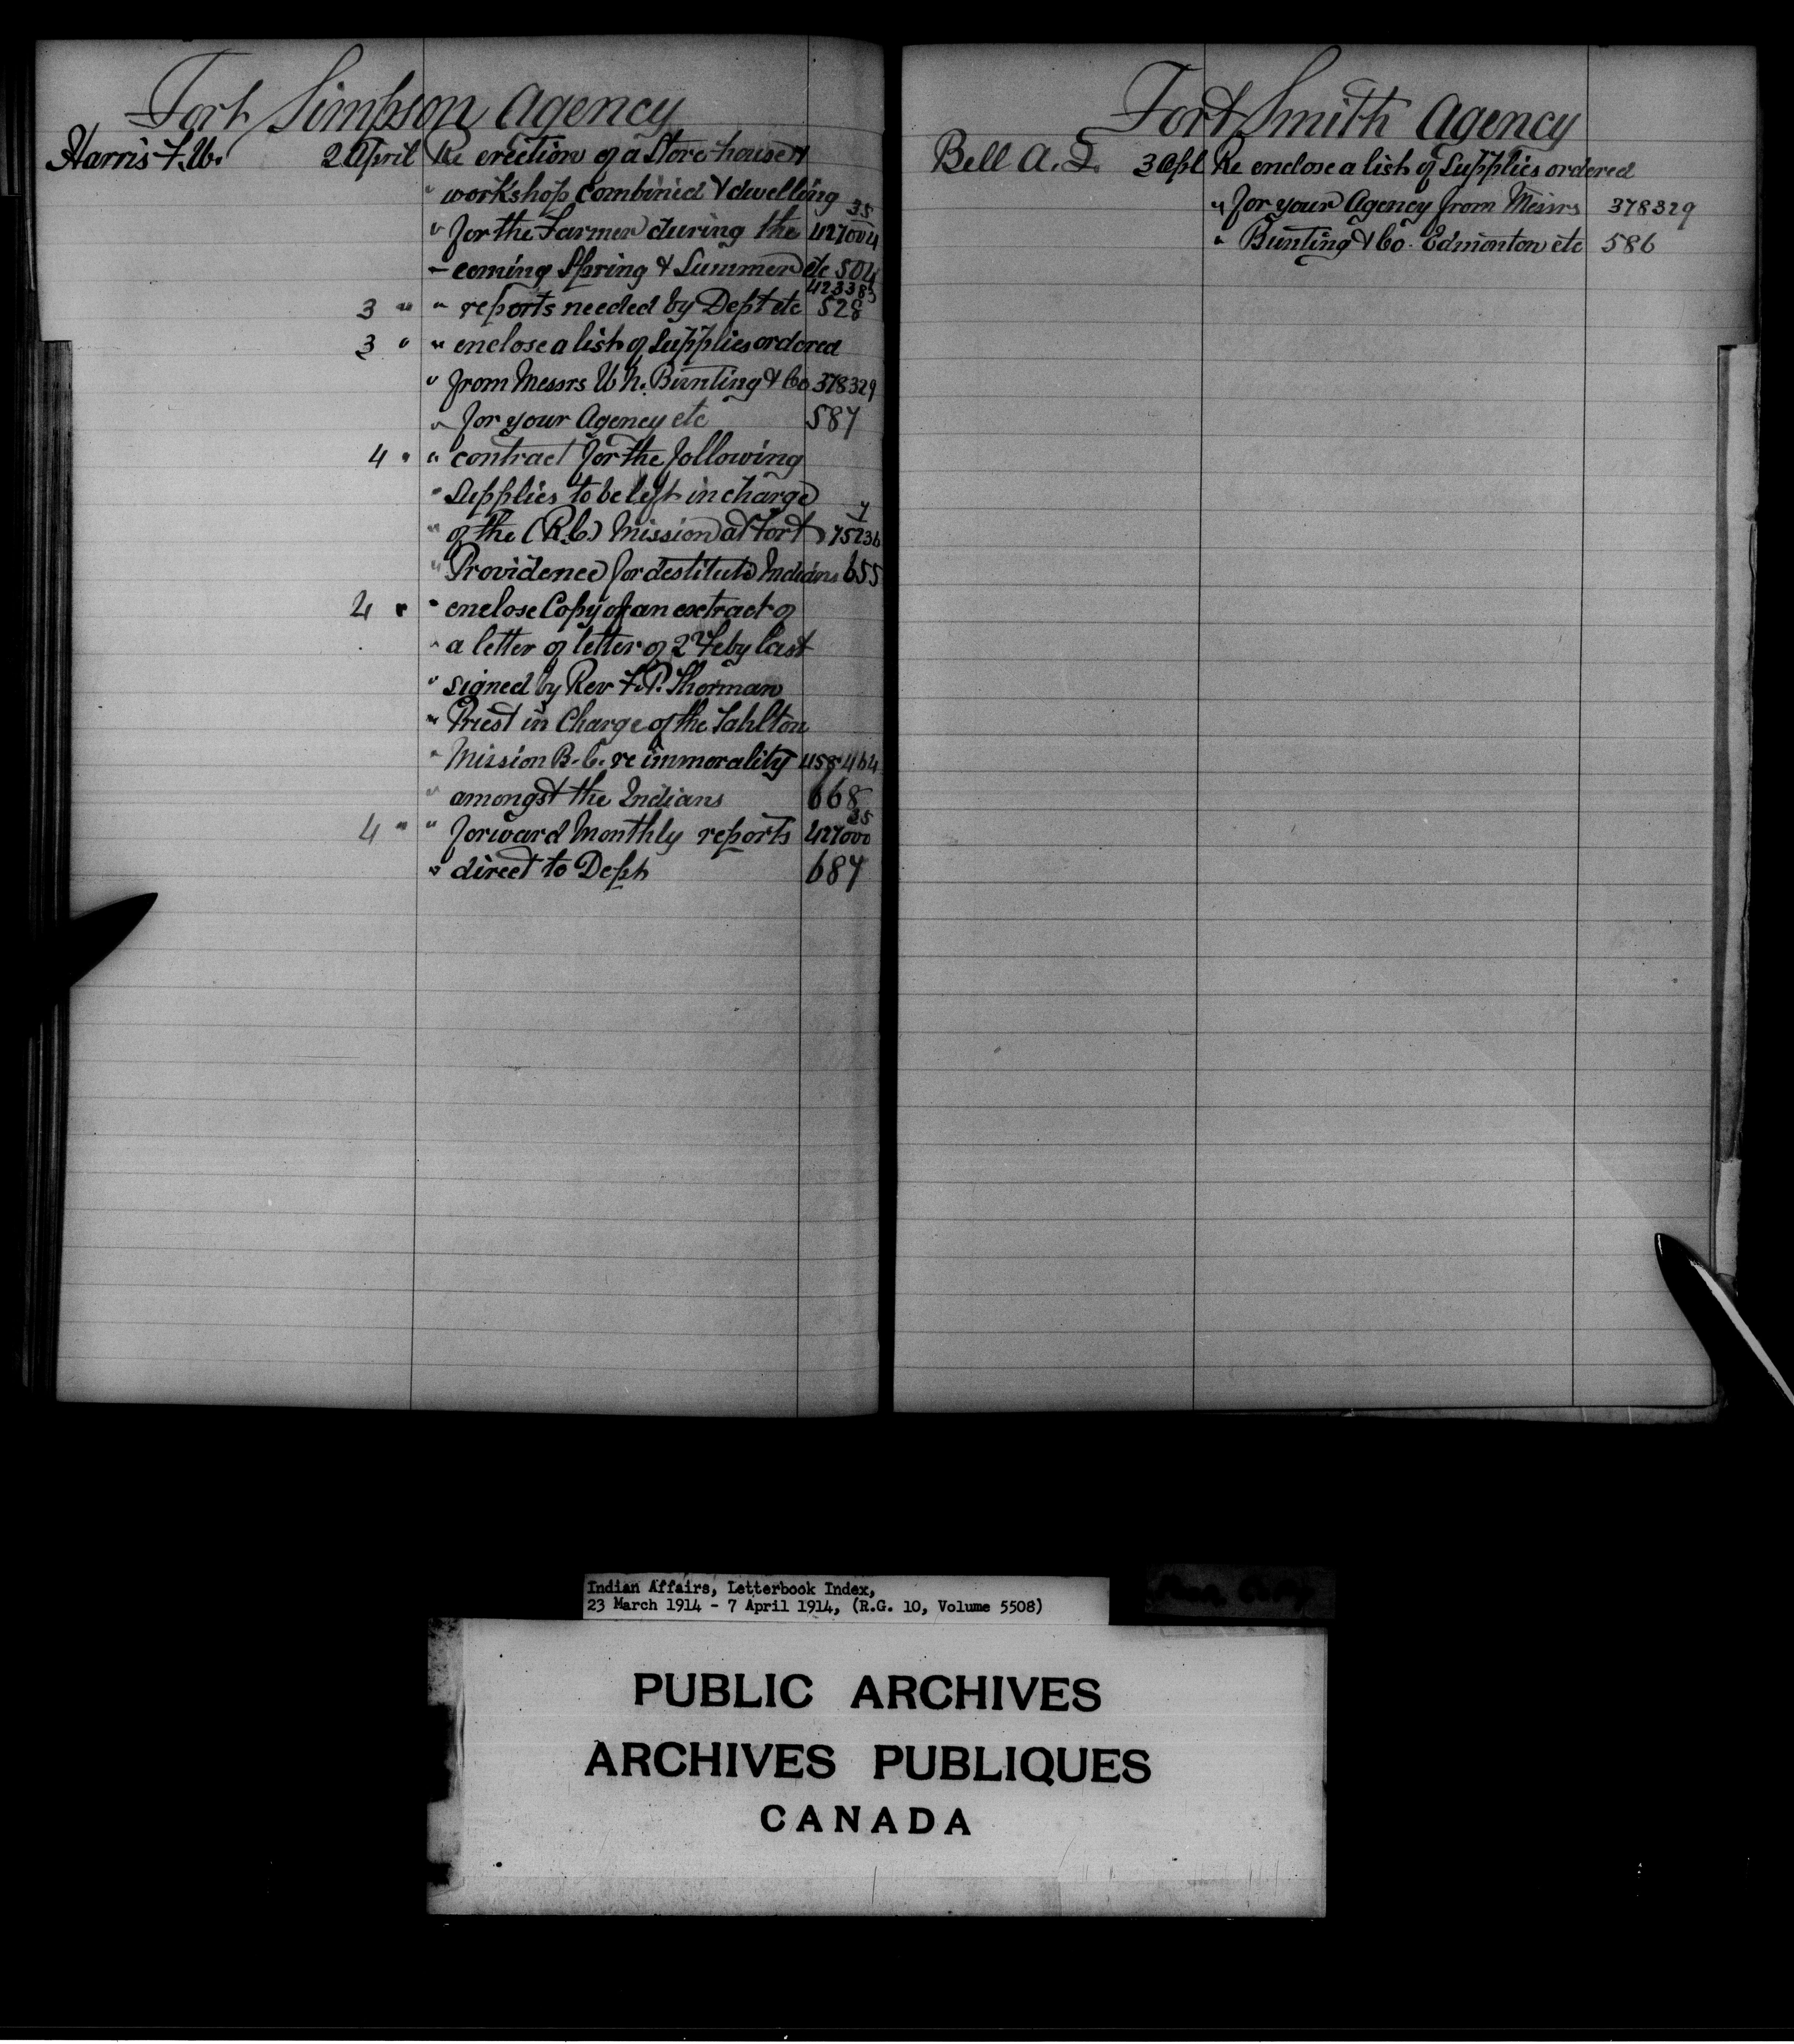 Fort Simpson Agency
Harris F.W. 2 April Re erection of a Store-house &
" workshop combined & dwelling 35
" for the Farmer during the 427004
- coming Spring & Summer etc 504
423383
3 " " reports needed by Dept etc 528
3 " " enclose a list of Supplies ordered
" from Messrs W.H. Bunting & Co 378329
" for your Agency etc 587
4 " " contract for the following
" Supplies to be left in charge 7
" of the (R.C.) Mission at Fort 75236
" Providence for destitute Indians 655
4 " " enclose Copy of an extract of
" a letter of letter of 2 Feby last
" signed by Rev F.P. Thorman
" Priest in Charge of the Tahltan
" Mission B.C. re immorality 458464
" amongst the Indians 668
35
4 " " forward Monthly reports 427000
" direct to Dept 687
Fort Smith Agency
Bell A. 3 Apl Re enclose a list of Supplies ordered
" for your Agency from Messrs 378329
" Bunting & Co. Edmonton etc 586
Indian Affairs, Letterbook Index,
23 March 1914 - 7 April 1914, (R.G. 10, Volume 5508)
PUBLIC ARCHIVES
ARCHIVES PUBLIQUES
CANADA